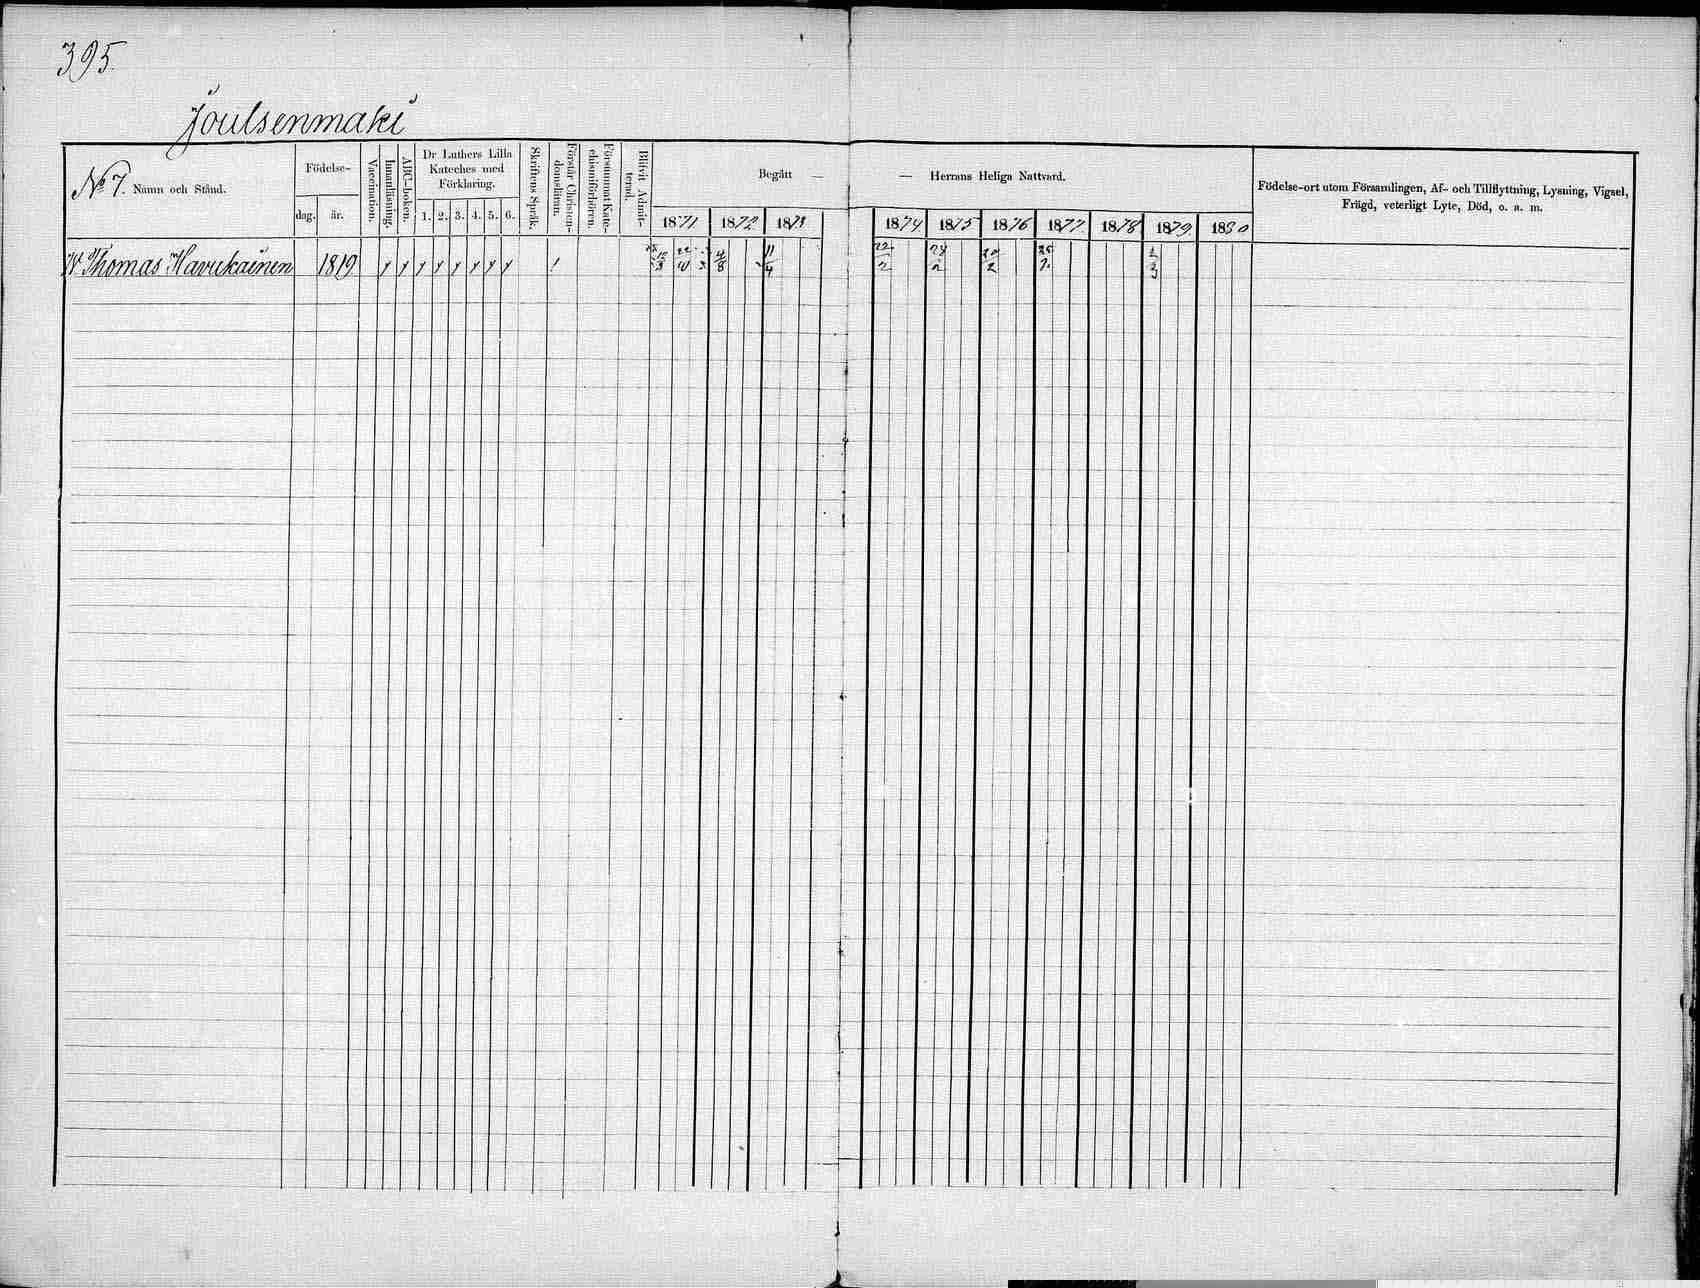 395.
Joutsenmäki
No 7. Namn och Stånd.
Födelse-
dag. år.
Vaccination.
Innanläsning.
ABC-boken.
Dr Luthers Lilla
Kateches med
Förklaring.
1. 2. 3. 4. 5. 6.
Skriftens Språk.
Förstår Christen-
domsläran.
Försummat Kate-
chismiförhören.
Blifvit Admit-
terad.
Begått — — Herrans Heliga Nattvard.
1871 1872 1873 1874 1875 1876 1877 1878 1879 1880
Födelse-ort utom Församlingen, Af- och Tillflyttning, Lysning, Vigsel,
Frägd, veterligt Lyte, Död, o. s. m.
Thomas Havukainen 1819 4/8 11/4 22/2 28/2 20/2 2/3